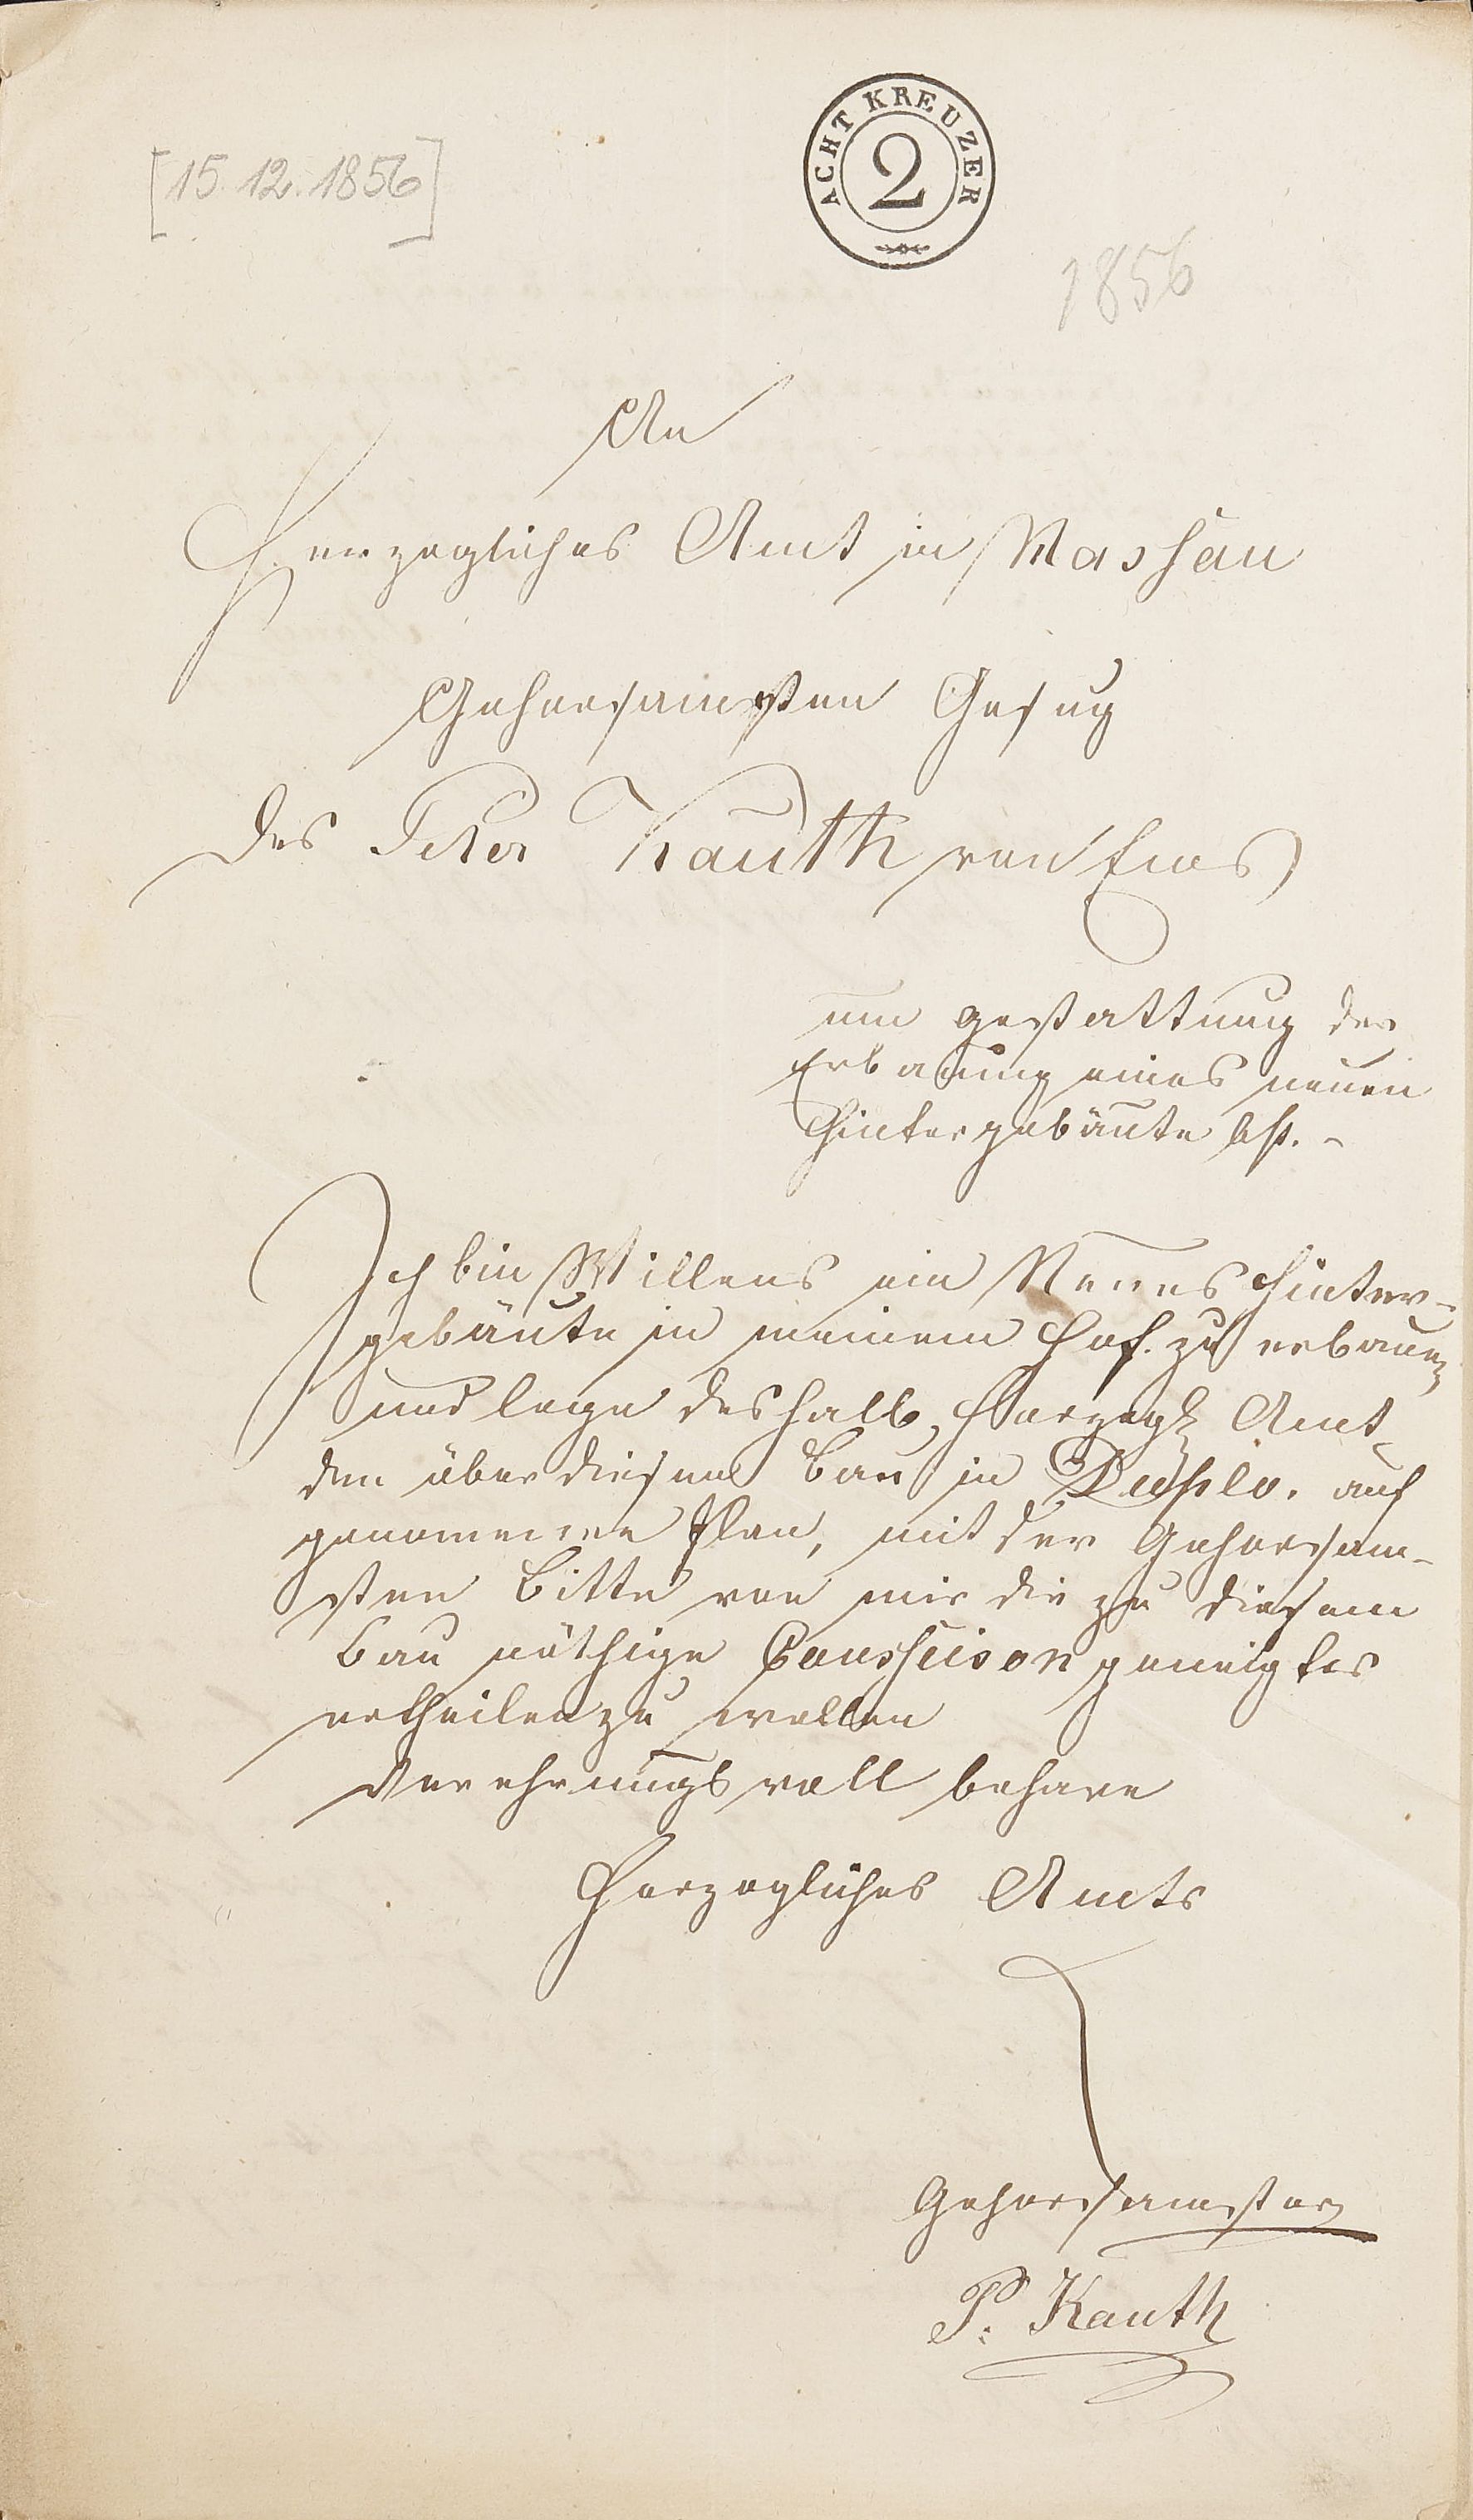 ACHT KREUZER
2
[15. 12. 1856]
1856
An
Herzogliches Amt in Nassau
Gehorsamsten Gesuch
des Peter Kauth von Ems
um gestattung der
Erbauung eines neuen
Hintergebäute btr. -
Ich bin Willens ein Neues Hinter-
gebäute in meinem Hof. zu erbauen
und lege deshalb, Herzogl Amt
den über diesem Bau in auf
genommene Plan, mit der Gehorsam-
sten Bitte von mir die zu diesem
Bau nöthige geneigtes
ertheilen zu wollen
Verehrungsvoll behare
Herzogliches Amts
Gehorsamster
P. Kauth